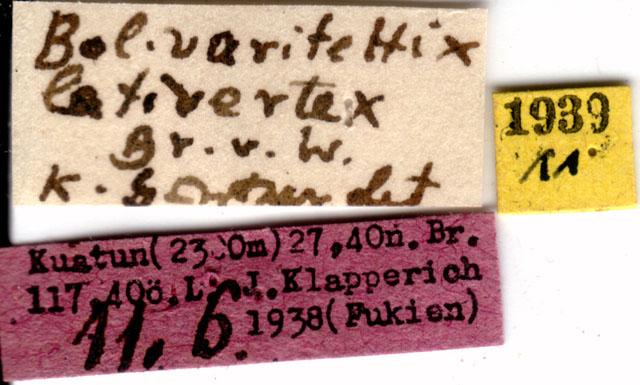 Bolivaritettix
lativertex
Br. v. W.
K. det
1939
11.
Kuatun(2300m)27,40n.Br.
117,40ö.L. J.Klapperich
11.6. 1938(Fukien)